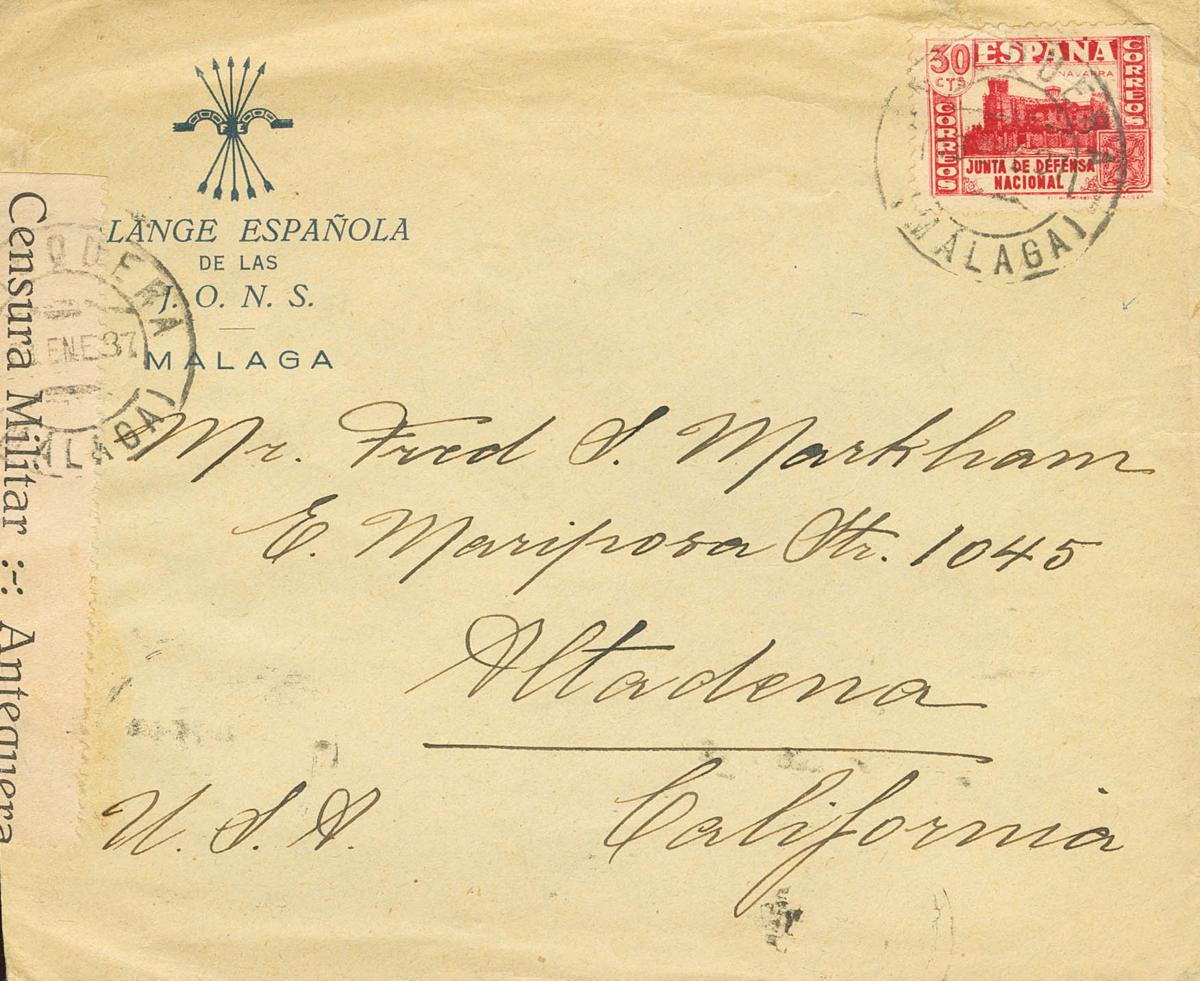 LANGE ESPAÑOLA
DE LAS
J. O. N. S.
MALAGA
30 CTS
ESPAÑA
NAVARRA
CORREOS
CORREOS
JUNTA DE DEFENSA
NACIONAL
(MALAGA)
ENE 37
ALAGA)
Censura Militar :-: Antequera
Mr. Fred S. Markham
E. Mariposa Str. 1045
Altadena
California
U. S. A.